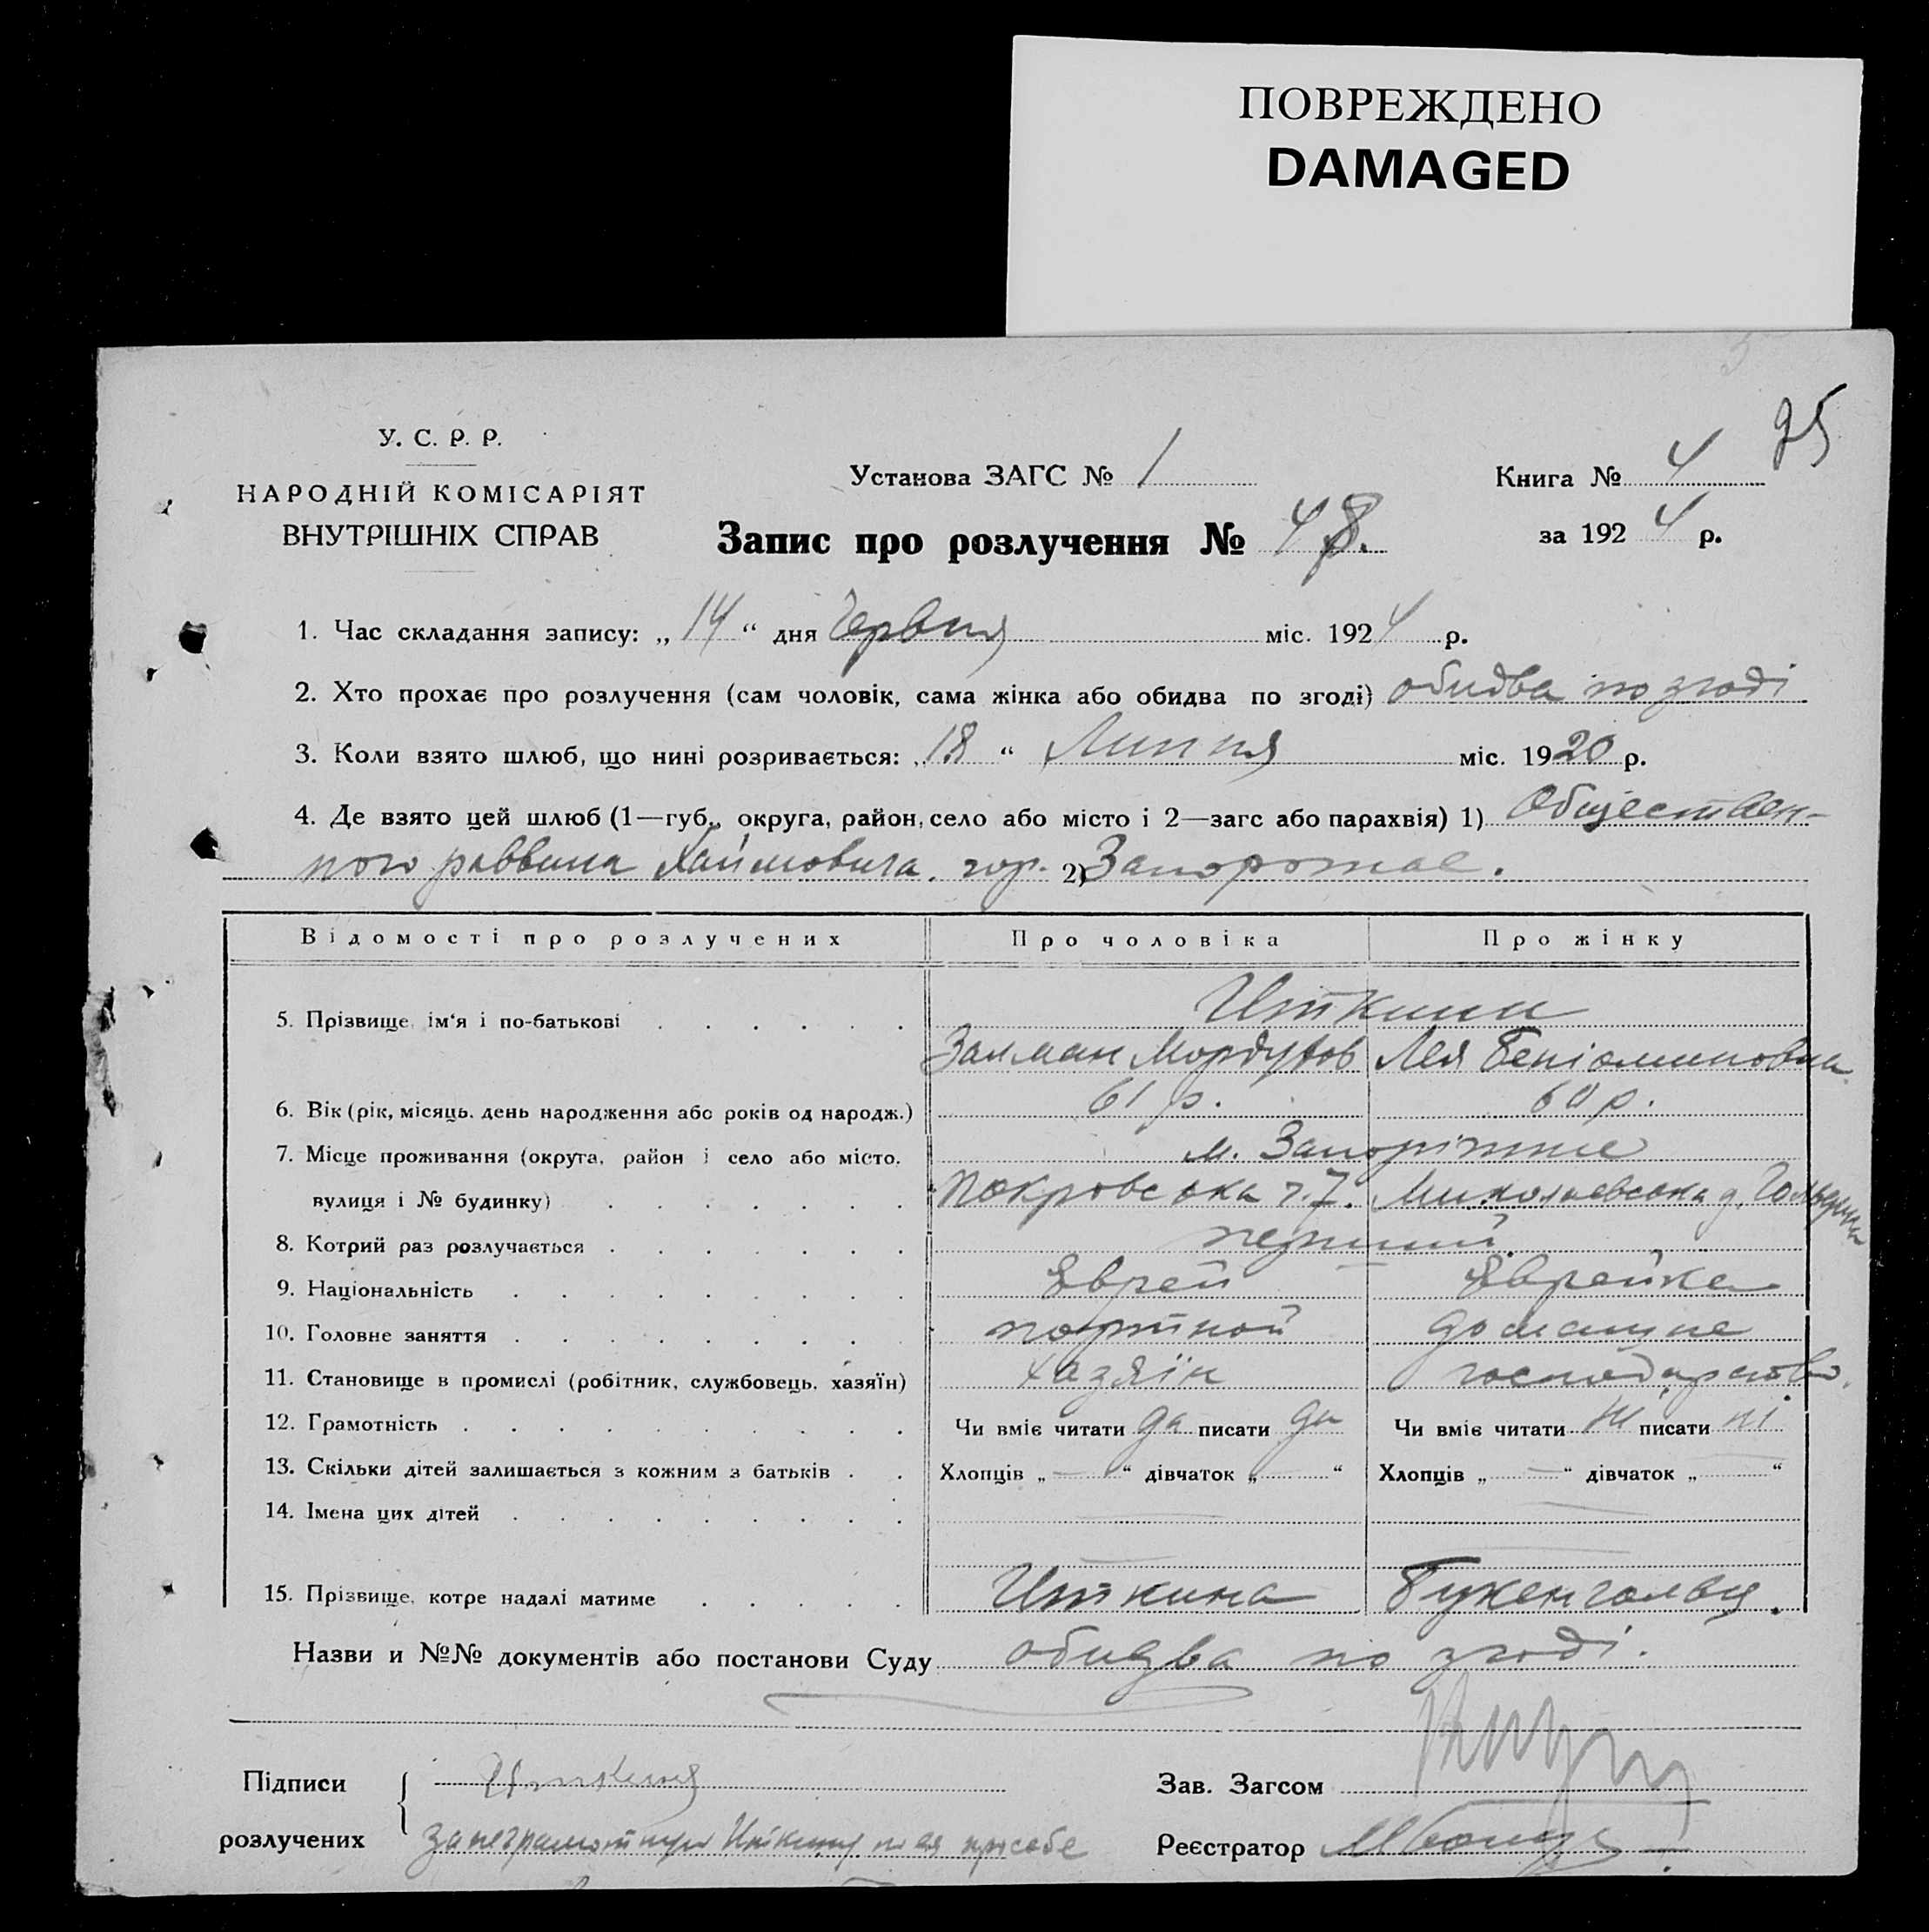 ПОВРЕЖДЕНО
DAMAGED
95
У. С. Р. Р.
НАРОДНІЙ КОМІСАРІЯТ
ВНУТРІШНІХ СПРАВ
Установа ЗАГС № 1
Книга № 4
Запис про розлучення № 48.
за 192 4 р.
1. Час складання запису: „ 14 “ дня Червня міс. 192 4 р.
2. Хто прохає про розлучення (сам чоловік, сама жінка або обидва по згоді) обидва по згоді
3. Коли взято шлюб, що нині розривається: „ 18 “ Липня міс. 1920 р.
4. Де взято цей шлюб (1—губ., округа, район, село або місто і 2—загс або парахвія) 1) Обществен-
ного раввина Хаймовича. гор. 2) Запорожье.
Відомості про розлучених Про чоловіка Про жінку
5. Прізвище, ім‘я і по-батькові Иткины
Залман Мордухов Лея Беніаминовна
6. Вік (рік, місяць, день народження або років од народж.) 61 р. 60 р.
7. Місце проживання (округа, район і село або місто, м. Запоріжжє
вулиця і № будинку) Покровська 7. Миколаевська д.
8. Котрий раз розлучається перший
9. Національність Еврей Еврейка
10. Головне заняття портной домашне
11. Становище в промислі (робітник, службовець, хазяїн) хазяїн господарство.
12. Грамотність Чи вміє читати да писати да Чи вміє читати ні писати ні
13. Скільки дітей залишається з кожним з батьків Хлопців „ — “ дівчаток „ “ Хлопців „ — “ дівчаток „ “
14. Імена цих дітей
15. Прізвище, котре надалі матиме Иткина
Назви и №№ документів або постанови Суду обидва по згоді.
Підписи
розлучених
Зав. Загсом
за неграмотную Иткину
Реєстратор